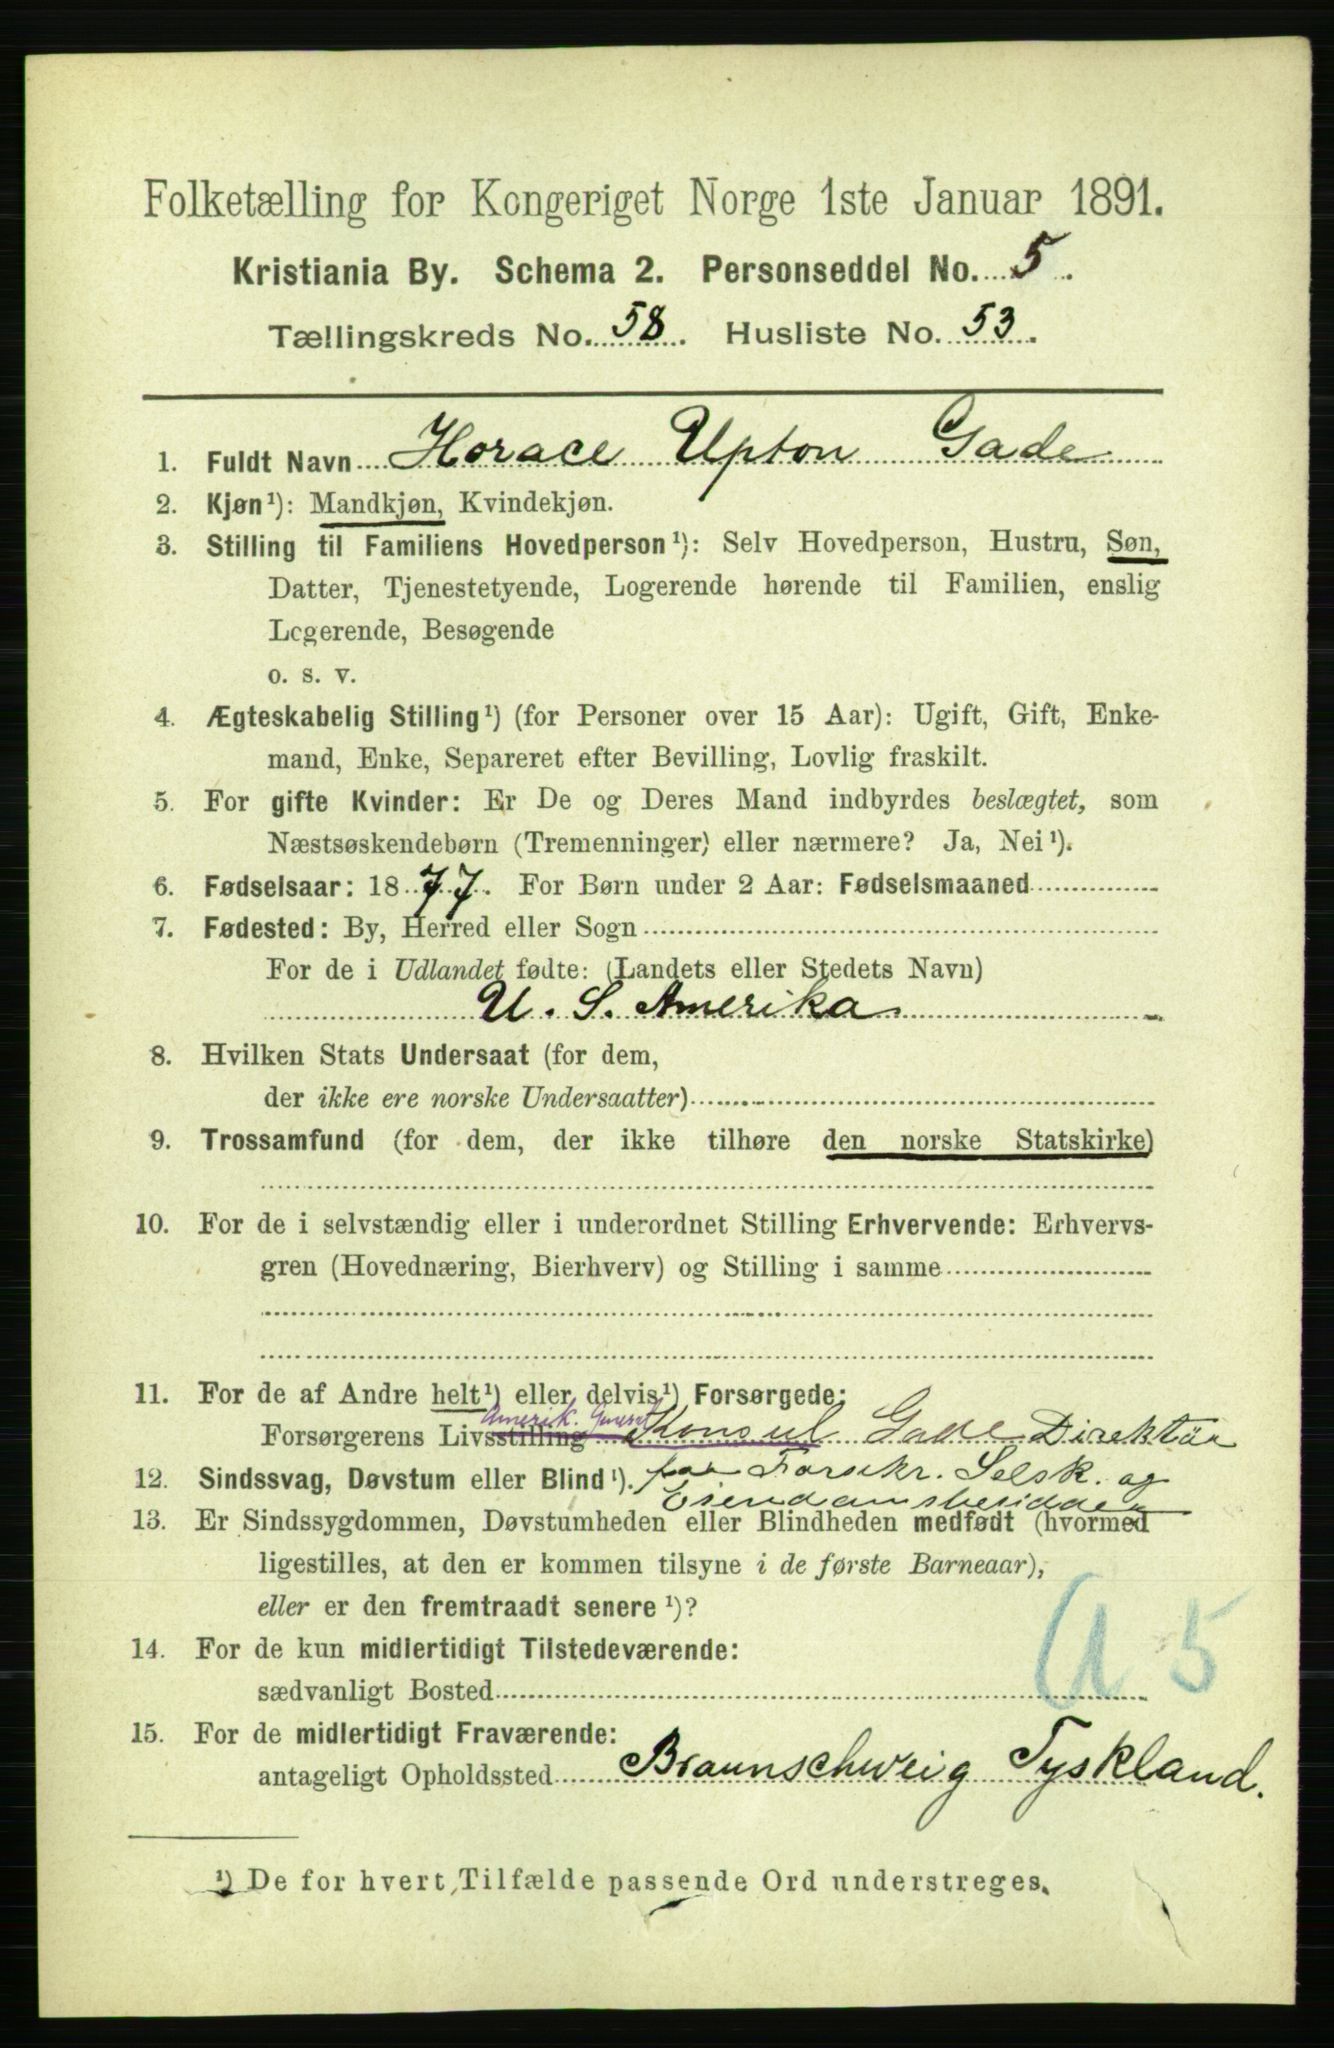 Folketælling for Kongeriget Norge 1ste Januar 1891.
Kristiania By. Schema 2. Personseddel No. 5.
Tællingskreds No. 58. Husliste No. 53.
1. Fuldt Navn Horace Upton Gade
2. Kjøn¹): Mandkjøn, Kvindekjøn.
3. Stilling til Familiens Hovedperson¹): Selv Hovedperson, Hustru, Søn,
Datter, Tjenestetyende, Logerende hørende til Familien, enslig
Logerende, Besøgende
o. s. v.
4. Ægteskabelig Stilling¹) (for Personer over 15 Aar): Ugift, Gift, Enke-
mand, Enke, Separeret efter Bevilling, Lovlig fraskilt.
5. For gifte Kvinder: Er De og Deres Mand indbyrdes beslægtet, som
Næstsøskendebørn (Tremenninger) eller nærmere? Ja, Nei¹).
6. Fødselsaar: 1877. For Børn under 2 Aar: Fødselsmaaned
7. Fødested: By, Herred eller Sogn
For de i Udlandet fødte: (Landets eller Stedets Navn)
U. S. Amerika
8. Hvilken Stats Undersaat (for dem,
der ikke ere norske Undersaatter)
9. Trossamfund (for dem, der ikke tilhøre den norske Statskirke)
10. For de i selvstændig eller i underordnet Stilling Erhvervende: Erhvervs-
gren (Hovednæring, Bierhverv) og Stilling i samme
11. For de af Andre helt¹) eller delvis¹) Forsørgede:
Amerik. General
Forsørgerens Livsstilling Konsul Gade Direktør
12. Sindssvag, Døvstum eller Blind¹). for Forsikr. Selsk. og
Eiendomsbesidder
13. Er Sindssygdommen, Døvstumheden eller Blindheden medfødt (hvormed
ligestilles, at den er kommen tilsyne i de første Barneaar),
eller er den fremtraadt senere¹)?
14. For de kun midlertidigt Tilstedeværende:
sædvanligt Bosted
15. For de midlertidigt Fraværende:
antageligt Opholdssted Braunschweig Tyskland.
¹) De for hvert Tilfælde passende Ord understreges.